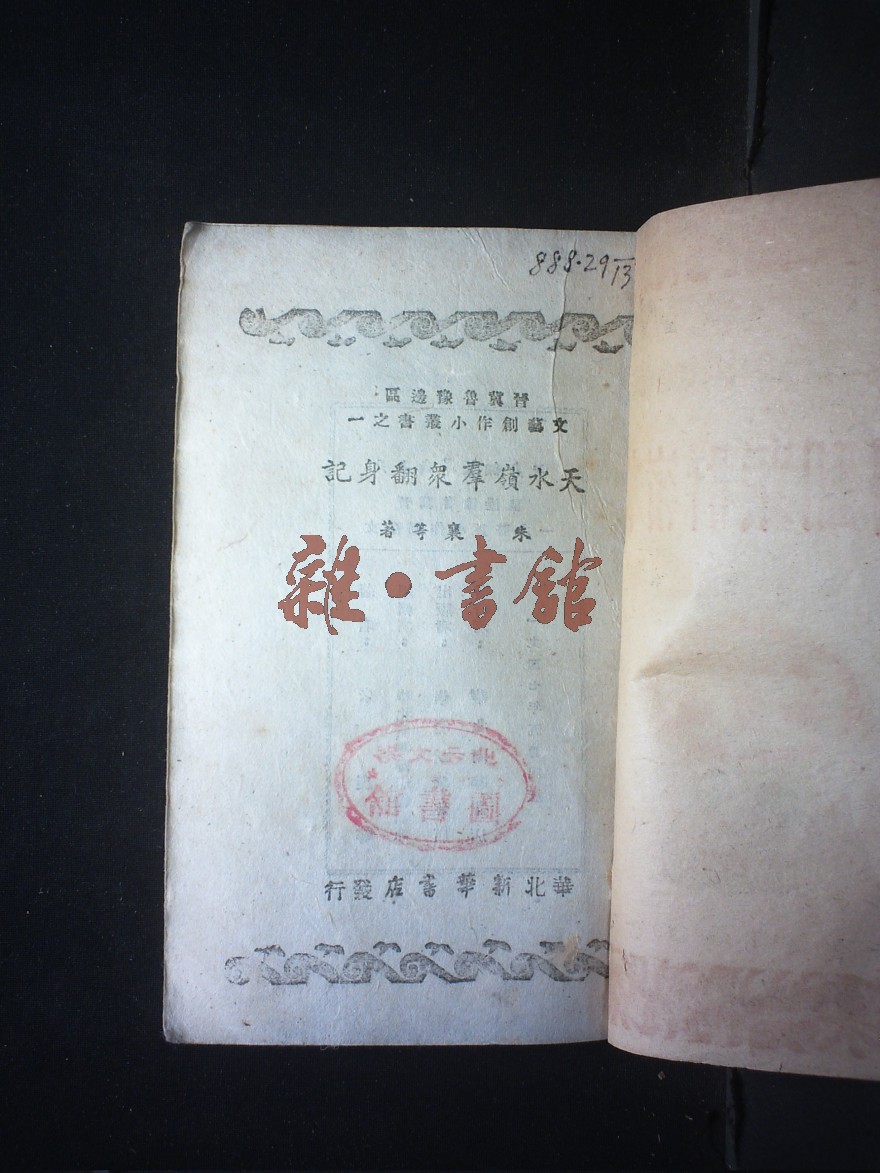 888.29/13
晉冀魯豫邊區
文藝創作小叢書之一
天水嶺羣衆翻身記
朱襄等著
雜·書館
圖書館
華北新華書店發行